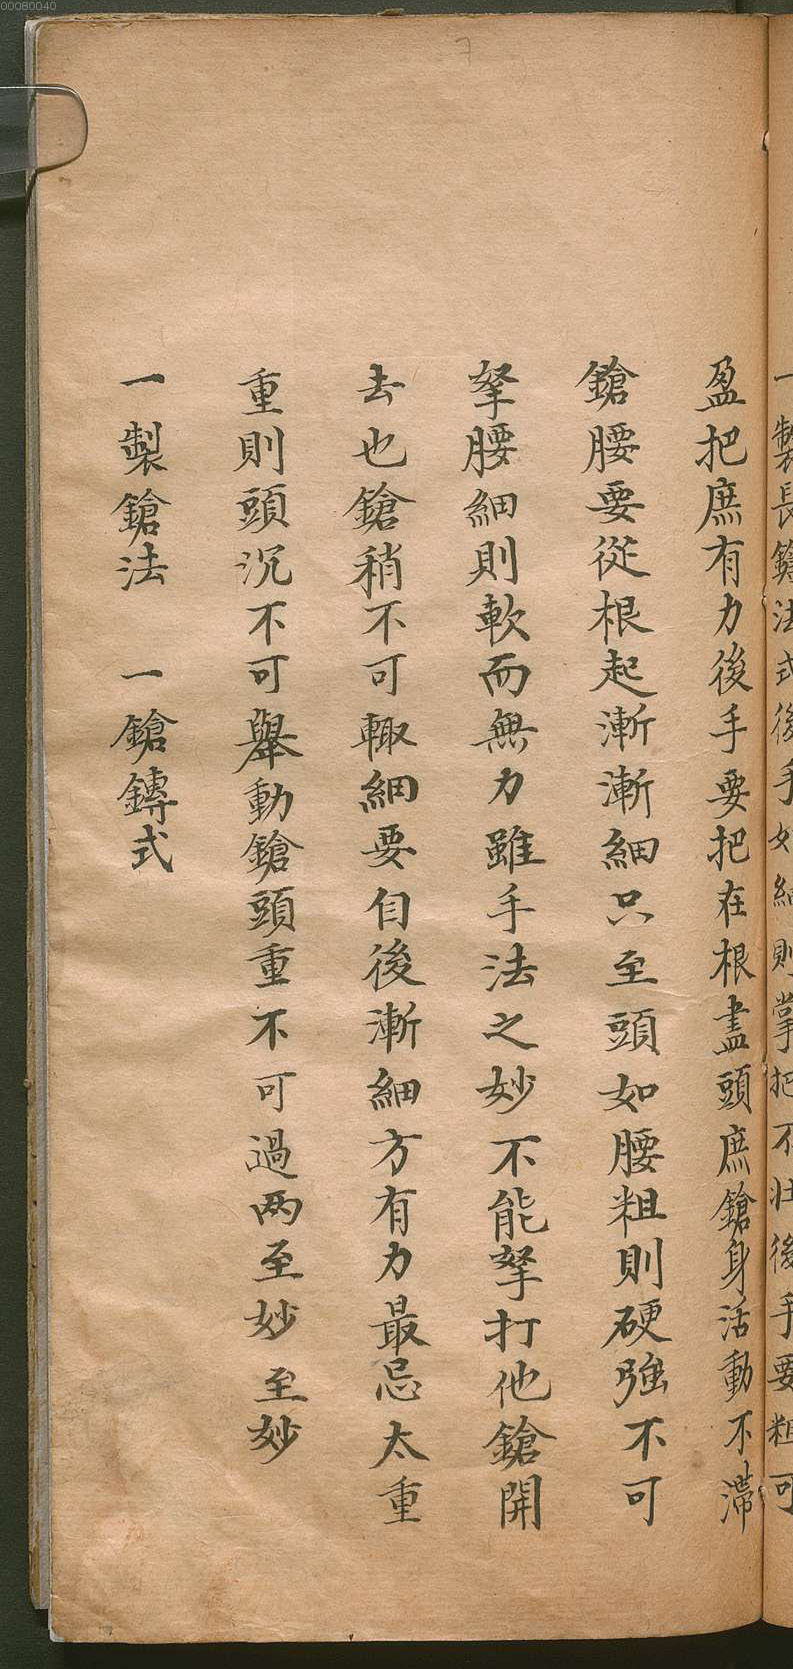 00080040
7
一製長鎗法式後手如細則掌把不壯後手要粗可
盈把庶有力後手要把在根盡頭庶鎗身活動不滯
鎗腰要從根起漸漸細只至頭如腰粗則硬強不可
拏腰細則軟而無力雖手法之妙不能拏打他鎗開
去也鎗稍不可輙細要自後漸細方有力最忌太重
重則頭沉不可舉動鎗頭重不可過两至妙至妙
一製鎗法　一鎗鏄式